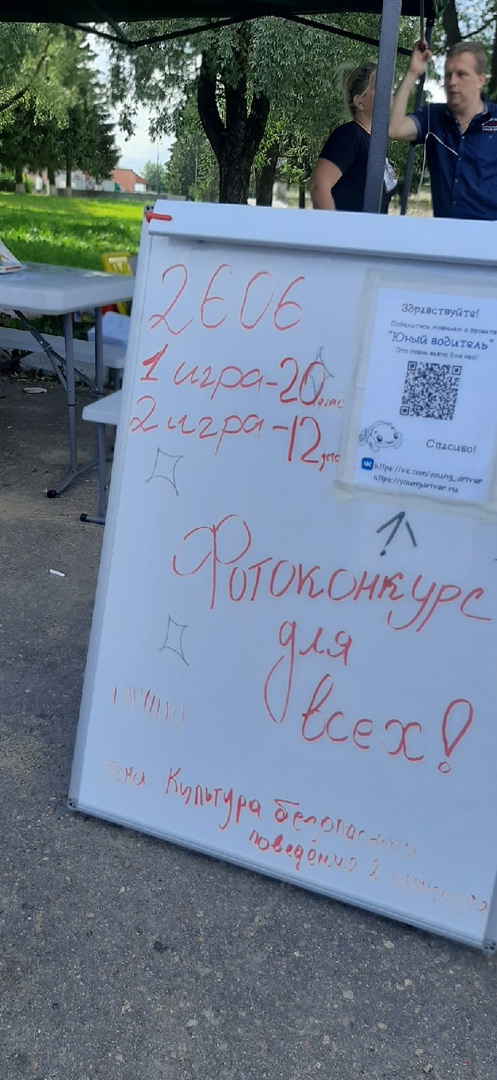 26.06
1 игра-20 детей
2 игра-12 дете
Здравствуйте!
Поделитесь мнением о проекте
"Юный водитель"
Это очень важно для нас!
Спасибо!
https://vk.com/young_driver
https://youngdriver.ru
Фотоконкурс
для
всех!
Тема. Культура безопасного
поведения в